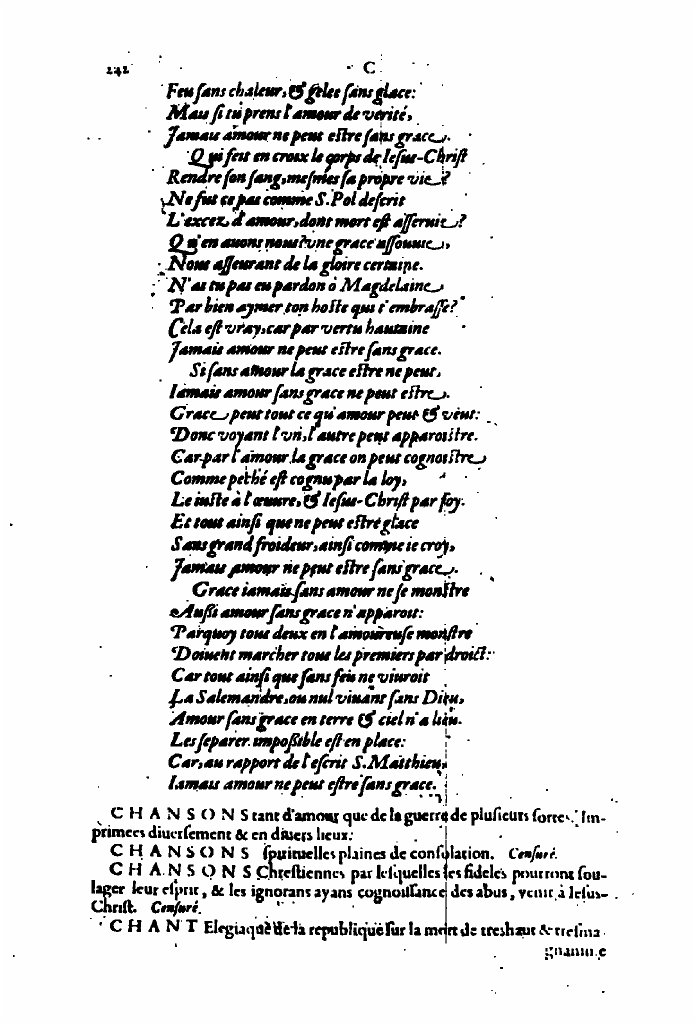 242 C
Feu sans chaleur, & gelee sans glace:
Mais si tu prens l'amour de verité,
Jamais amour ne peut estre sans grace.
Qui feit en croix le corps de Iesus-Christ
Rendre son sang, mesmes sa propre vie?
Ne fut ce pas comme S. Pol descrit
L'excez d'amour, dont mort est asseruie?
Qu'en auons nous? vne grace assouuie,
Nous asseurant de la gloire certaine.
N'as tu pas eu pardon ô Magdelaine,
Par bien aymer ton hoste qui t'embrasse?
Cela est vray, car par vertu hautaine
Jamais amour ne peut estre sans grace.
Si sans amour la grace estre ne peut,
Iamais amour sans grace ne peut estre.
Grace peut tout ce qu'amour peut & veut:
Donc voyant l'vn, l'autre peut apparoistre.
Car par l'amour la grace on peut cognoistre,
Comme peché est cognu par la loy,
Le iuste à l'œuure, & Iesus-Christ par foy.
Et tout ainsi que ne peut estre glace
Sans grand froideur, ainsi comme ie croy,
Jamais amour ne peut estre sans grace.
Grace iamais sans amour ne se monstre
Aussi amour sans grace n'apparoit:
Parquoy tous deux en l'amoureuse monstre
Doiuent marcher tous les premiers par droict:
Car tout ainsi que sans feu ne viuroit
La Salemandre, ou nul viuant sans Dieu,
Amour sans grace en terre & ciel n'a lieu.
Les separer impossible est en place:
Car, au rapport de l'escrit S. Matthieu,
Iamais amour ne peut estre sans grace.
CHANSONS tant d'amour que de la guerre de plusieurs sortes. Im-
primees diuersement & en diuers lieux.
CHANSONS spirituelles plaines de consolation. Censuré.
CHANSONS Chrestiennes par lesquelles les fideles pourront sou-
lager leur esprit, & les ignorans ayans cognoissance des abus, venir à Iesus-
Christ. Censuré.
CHANT Elegiaque de la republique sur la mort de treshaut & tresma
gnanime